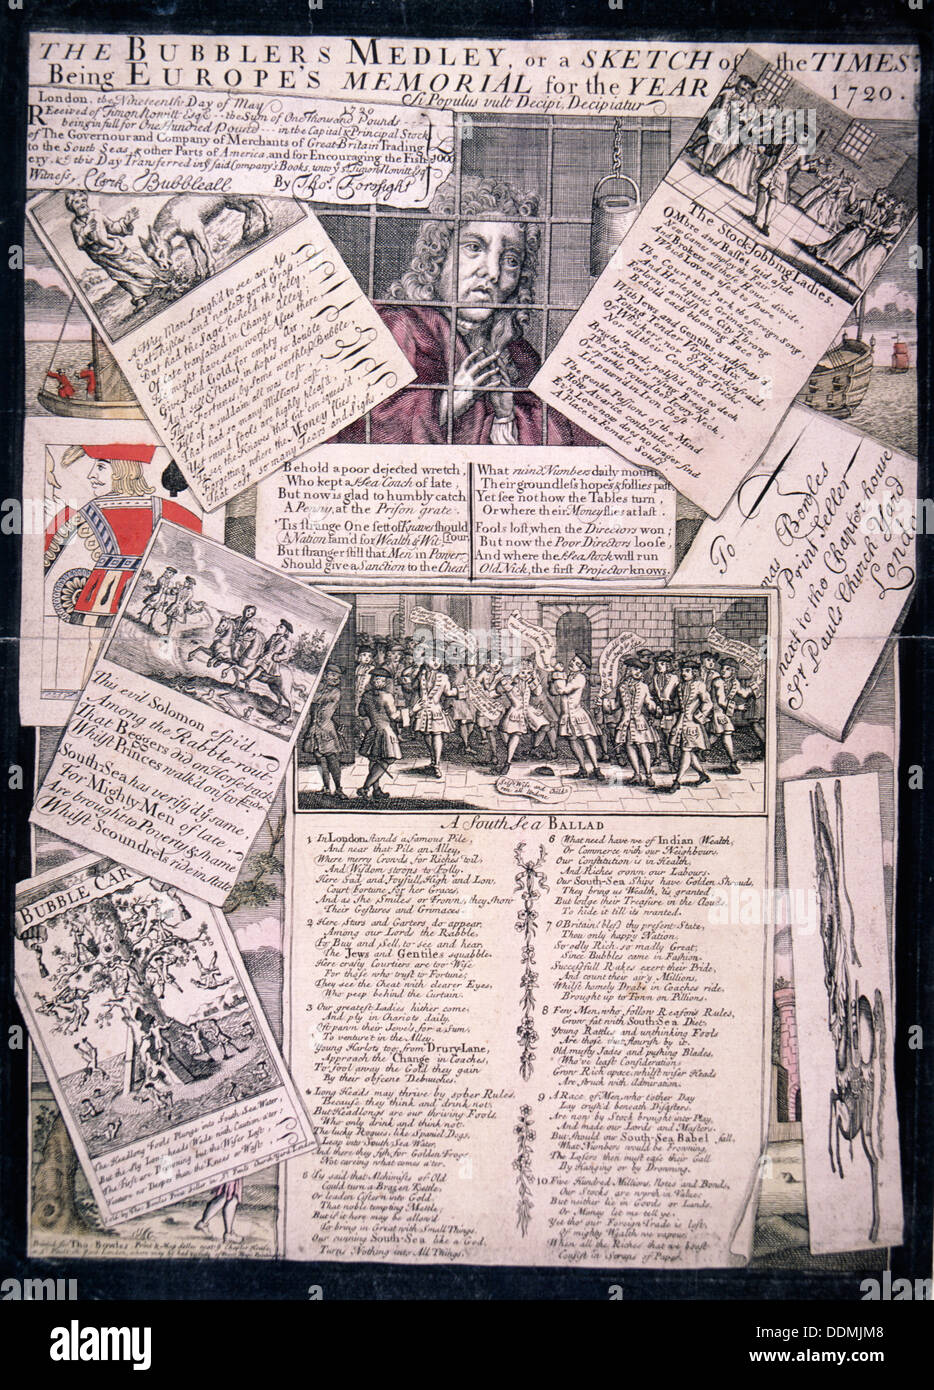 THE BUBBLERS MEDLEY, or a SKETCH of the TIMES:
Being EUROPE'S MEMORIAL for the YEAR 1720.
Si Populus vult Decipi, Decipiatur
London, the Nineteenth Day of May 1720
Received of Timon Novvitt Esqr. the Sum of One Thousand Pounds
being in full for One Hundred Pound in the Capital & Principal Stock
of The Governour and Company of Merchants of Great Britain Trading
to the South Seas, & other Parts of America, and for Encouraging the Fish-
ery, & this Day Transferred in ye said Company's Books, unto ye sd Timon Novvitt Esqr
£ 1000
Witness, Clerk Bubbleall By Tho. Foresight
A Wise Man Laugh'd to see an Ass
Eat Thistles and neglect good Grass.
But had the Sage beheld the folly,
Of late transacted in Change Alley;
He might have seen worse Asses there
Give solid Gold for empty Air,
And sell Estates in hopes to double
Their Fortunes by some worthless Bubble,
Till of a sudden all was lost,
That had so many Millions cost,
Yet ruind fools are highly pleas'd,
To see the Knaves that bit em squeez'd
Forgetting where the Money flies
That cost so many Tears and Sighs
The Stock-Jobbing Ladies.
OMbre and Basset laid aside
New Games employ the Fair
And Brokers all those Hours divide,
Which Lovers us'd to Share.
The Court, the Park, the foreign song,
And Harlequin's Grimace,
Forlorn; amidst the City Throng
Behold each blooming Face.
With Jews and Gentiles undismay'd
Young tender Virgins mix,
Of Whiskers, nor of Beards afraid,
Nor all the Cousening Tricks.
Bright Jewels, polish'd once to deck
The fair one's rising Breast,
Or sparkle round her Ivory Neck,
Lye pawn'd in Iron Chest.
The gentle Passions of the Mind
How Avarice controuls!
E'en Love now does no longer find
A place in Female Souls.
Behold a poor dejected wretch,
Who kept a Sea Coach of late;
But now is glad to humbly catch
A Penny, at the Prison grate.
'Tis strange One sett of Knaves should sour
A Nation fam'd for Wealth & Wit;
But stranger still that Men in Power
Should give a Sanction to the Cheat.
What ruin'd Numbers daily mourn
Their groundless hopes & follies past
Yet see not how the Tables turn,
Or where their Money flies at last.
Fools lost when the Directors won;
But now the Poor Directors loose,
And where the Sea Stock will run
Old Nick, the first Projector knows.
To
Bowles
Print Seller
next to the Chapter-house
St Pauls Church Yard
London
This evil Solomon espi'd,
Among the Rabble-rout
That Beggers did on Horseback
Whilst Princes walk'd on foot
South-Sea has verifi'd ye same,
For Mighty Men of late
Are brought to Poverty & shame
Whilst Scoundrels ride in state
BUBBLE CAR
The Headlong Fools Plunge into South Sea Water,
But the Sly Long-heads Wade with Caution a'ter;
The First are Drowning but the Wiser Last
Venture no Deeper than the Knees or Waist.
A South Sea BALLAD
1 In London stands a famous Pile,
And near that Pile an Alley,
Where merry Crowds for Riches toil,
And Wisdom stoops to Folly:
Here Sad and Joyfull, High and Low,
Court Fortune for her Graces,
And as She Smiles or Frowns, they show
Their Gestures and Grimaces.
2 Here Stars and Garters do appear,
Among our Lords the Rabble,
To Buy and Sell, to see and hear,
The Jews and Gentiles squabble.
Here crafty Courtiers are too Wise
For those who trust to Fortune;
They see the Cheat with clearer Eyes,
Who peep behind the Curtain.
3 Our greatest Ladies hither come,
And ply in Chariots daily,
Oft pawn their Jewels for a Sum,
To venture't in the Alley.
Young Harlots too, from Drury-Lane,
Approach the Change in Coaches,
To fool away the Gold they gain
By their obscene Debauches.
4 Long Heads may thrive by sober Rules,
Because they think and drink not;
But Headlongs are our thriving Fools,
Who only drink and think not:
The lucky Rogues, like Spaniel Dogs,
Leap into South Sea Water,
And there they fish for Golden Frogs
Not careing what comes a'ter.
5 'Tis said that Alchimists of Old
Could turn a Brazen Kettle,
Or leaden Cistern into Gold,
That noble tempting Mettle;
But if it here may be allow'd
To bring in Great with Small Things,
Our cunning South-Sea like a God,
Turns Nothing into All Things.
6 What need have we of Indian Wealth,
Or Commerce with our Neighbours,
Our Constitution is in Health,
And Riches crown our Labours.
Our South-Sea Ships have Golden Shrouds,
They bring us Wealth, 'tis granted,
But lodge their Treasure in the Clouds,
To hide it till its wanted.
7 O Britain! bless thy present State,
Thou only happy Nation,
So odly Rich, so madly Great,
Since Bubbles came in Fashion.
Successfull Rakes exert their Pride,
And count their airy Millions,
Whilst homely Drabs in Coaches ride,
Brought up to Town on Pillions.
8 Few Men, who follow Reason's Rules,
Grow fat with South-Sea Diet;
Young Rattles and unthinking Fools
Are those that flourish by it.
Old musty Jades and pushing Blades,
Who've least Consideration,
Grow Rich apace, whilst wiser Heads
Are struck with Admiration.
9 A Race of Men, who t'other Day
Lay crush'd beneath Disasters,
Are now by Stock brought into Play,
And made our Lords and Masters.
But should our South-Sea Babel fall,
What Numbers would be frowning,
The Losers then must ease their Gall
By Hanging or by Drowning.
10 Five Hundred Millions, Notes and Bonds,
Our Stocks are worth in Value;
But neither lie in Goods or Lands,
Or Money let me tell ye.
Yet tho' our Foreign Trade is lost,
Of mighty Wealth we vapour,
When all the Riches that we boast
Consist in Scraps of Paper.
Printed for Tho. Bowles Print & Map Seller next ye Chapter House
alamy
Image ID: DDMJM8
www.alamy.com